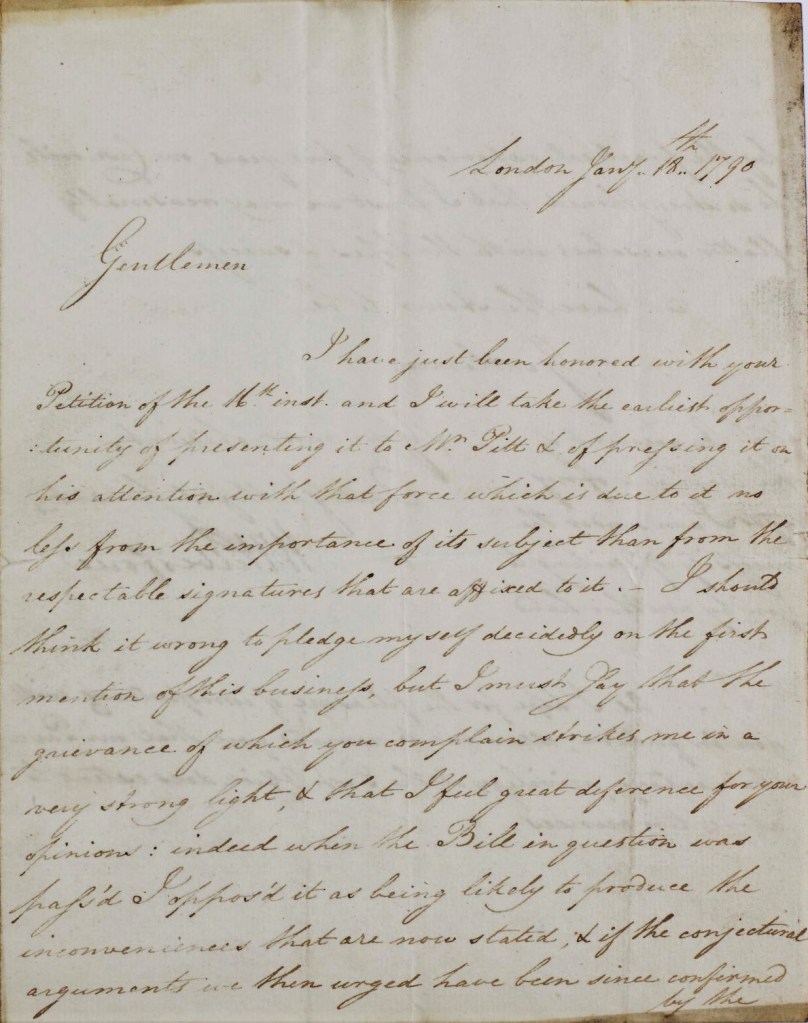 London Jany. 18th. 1790
Gentlemen
I have just been honored with your
Petition of the 16th inst. and I will take the earliest oppor=
:tunity of presenting it to Mr. Pitt & of pressing it on
his attention with that force which is due to it no
less from the importance of its subject than from the
respectable signatures that are affixed to it. – I should
think it wrong to pledge myself decidedly on the first
mention of this business, but I must say that the
grievance of which you complain strikes me in a
very strong light, & that I feel great deference for your
opinions: indeed when the Bill in question was
pass'd I oppos'd it as being likely to produce the
inconveniences that are now stated; & if the conjectural
arguments we then urged have been since confirmed
by the